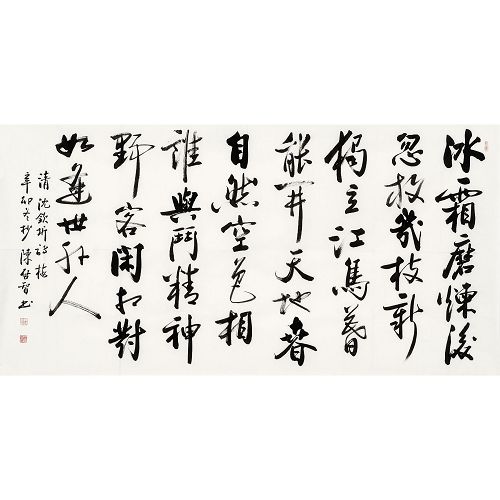 冰霜磨煉後
忽放幾枝新
獨立江馬暮
能開天地春
自然空色相
誰與鬥精神
野客閑相對
如逢世外人
清 沈欽圻詩梅
辛卯冬杪 陳啓智書